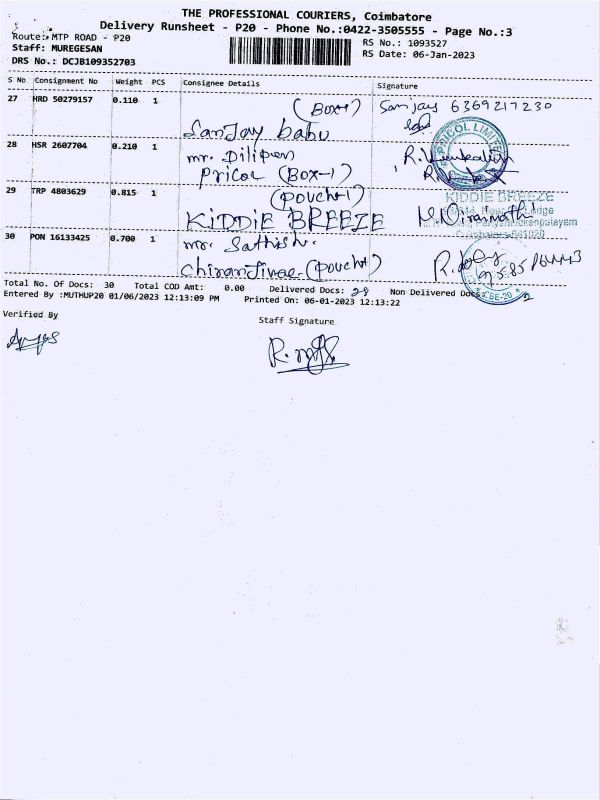 THE PROFESSIONAL COURIERS, Coimbatore
Delivery Runsheet - P20 - Phone No.:0422-3505555 - Page No.:3
Route: MTP ROAD - P20
Staff: MUREGESAN
DRS No.: DCJB109352703
RS No.: 1093527
RS Date: 06-Jan-2023
S No Consignment No Weight PCS Consignee Details Signature
27 HRD 50279157 0.110 1 (Box-1) Sanjay 6369217230
Sanjay babu
28 HSR 2607704 0.210 1 mr. Dilipen
Pricol (Box-1)
PRICOL LIMITED
29 TRP 4803629 0.815 1 (Pouch-1)
KIDDIE BREEZE
KIDDIE BREEZE
30 PON 16133425 0.700 1 mr. Sathish.
(Pouch-1)
Total No. Of Docs: 30 Total COD Amt: 0.00 Delivered Docs: 28 Non Delivered Docs: 2
Entered By :MUTHUP20 01/06/2023 12:13:09 PM Printed On: 06-01-2023 12:13:22
Verified By
Staff Signature